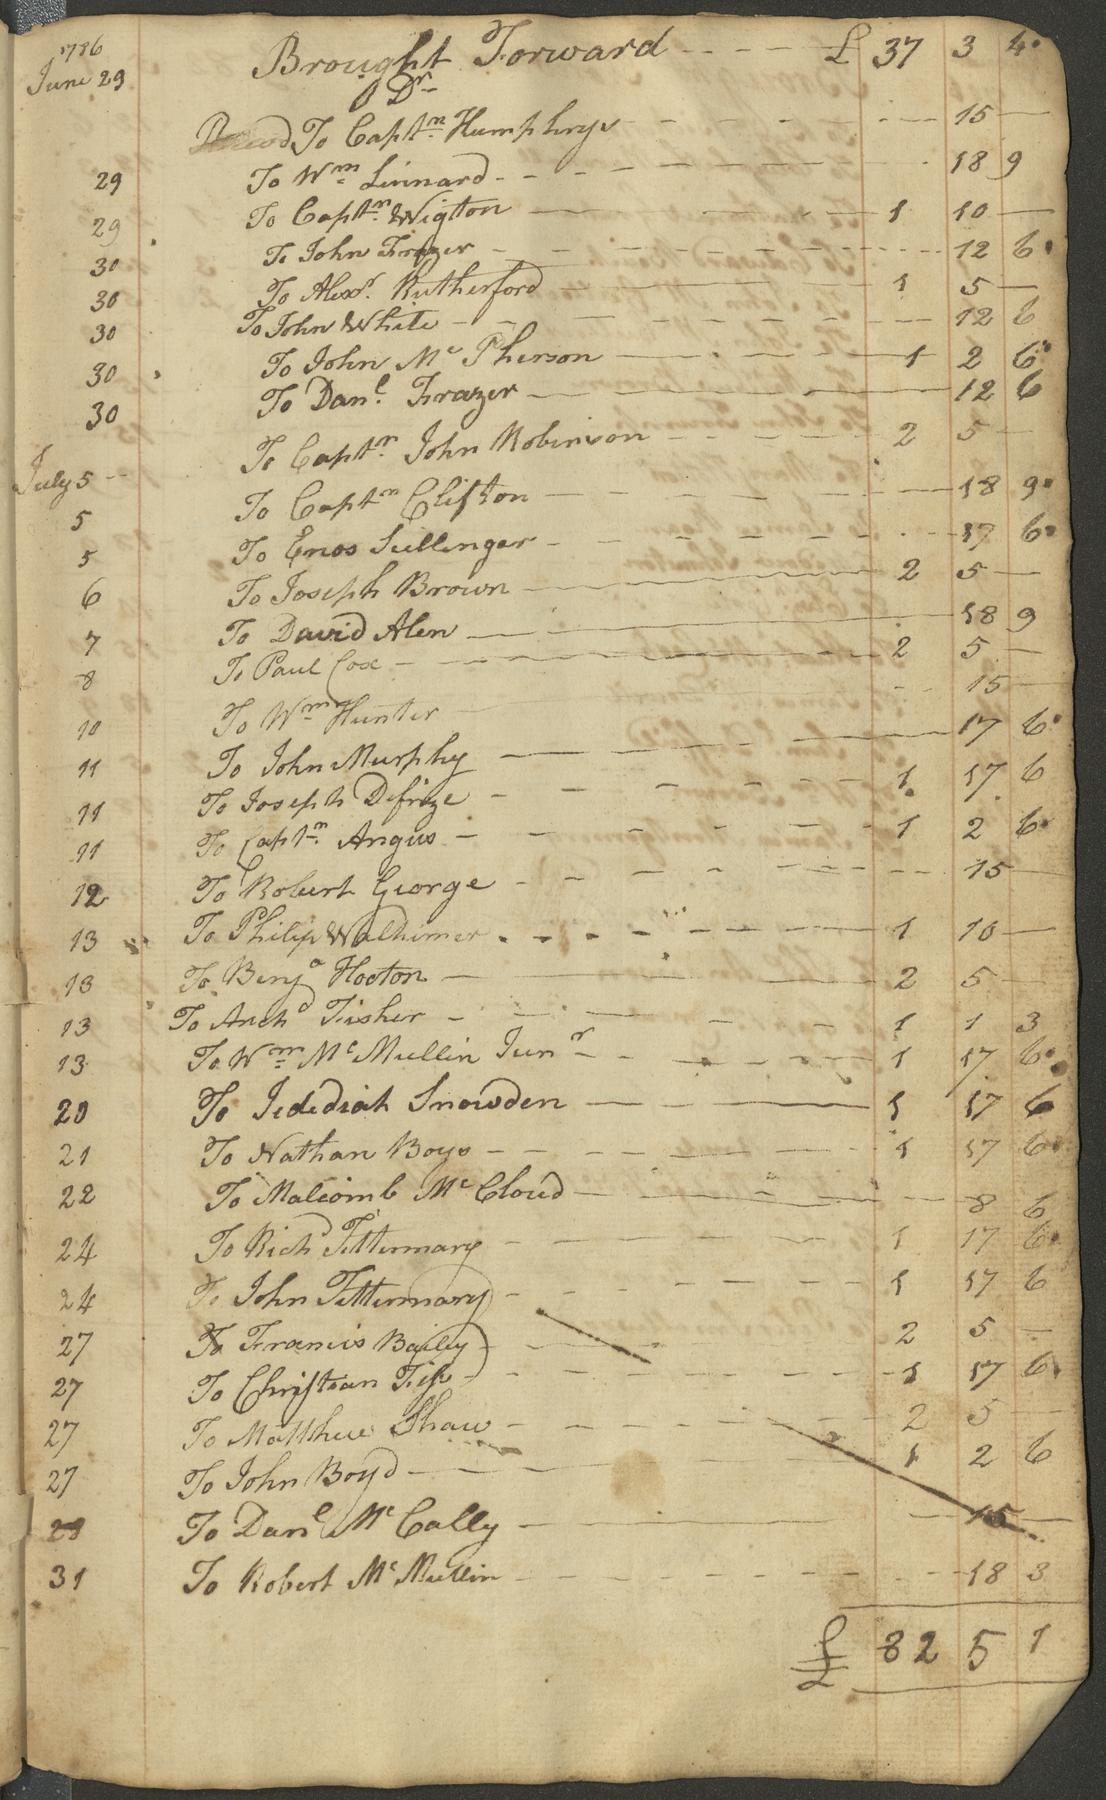 1786
June 29 Brought Forward £ 37 3 4
Dr
To Captn Humphrys 15 —
29 To Wm Linnard 18 9
29 To Captn Wigton 1 10 —
30 To John Frazer 12 6
30 To Alexr Rutherford 1 5 —
30 To John White 12 6
30 To John Mc Pherson 1 2 6
30 To Danl Frazer 12 6
To Captn John Robinson 2 5 —
July 5 To Captn Clifton 18 9
5 To Enos Sullinger 17 6
5 To Joseph Brown 2 5 —
6 To David Alen 18 9
7 To Paul Cox 2 5 —
8 To Wm Hunter 15 —
10 To John Murphy 17 6
11 To Joseph Difrize 1 17 6
11 To Captn Angus 1 2 6
11 To Robert George 15 —
12 To Philip Waldimer 1 10 —
13 To Benja Hooton 2 5 —
13 To Archd Fisher 1 1 3
13 To Wm Mc Mullin Junr 1 17 6
13
20 To Jedediah Snowden 1 17 6
21 To Nathan Boys 1 17 6
22 To Malcomb Mc Cloud 8 6
24 To Richd Tittermary 1 17 6
24 To John Tittermary 1 17 6
27 To Francis Baily 2 5 —
27 To Christian Fiss 1 17 6
27 To Matthew Shaw 2 5 —
27 To John Boyd 1 2 6
28 To Danl Mc Cally 15 —
31 To Robert Mc Mullin 18 3
£ 82 5 1